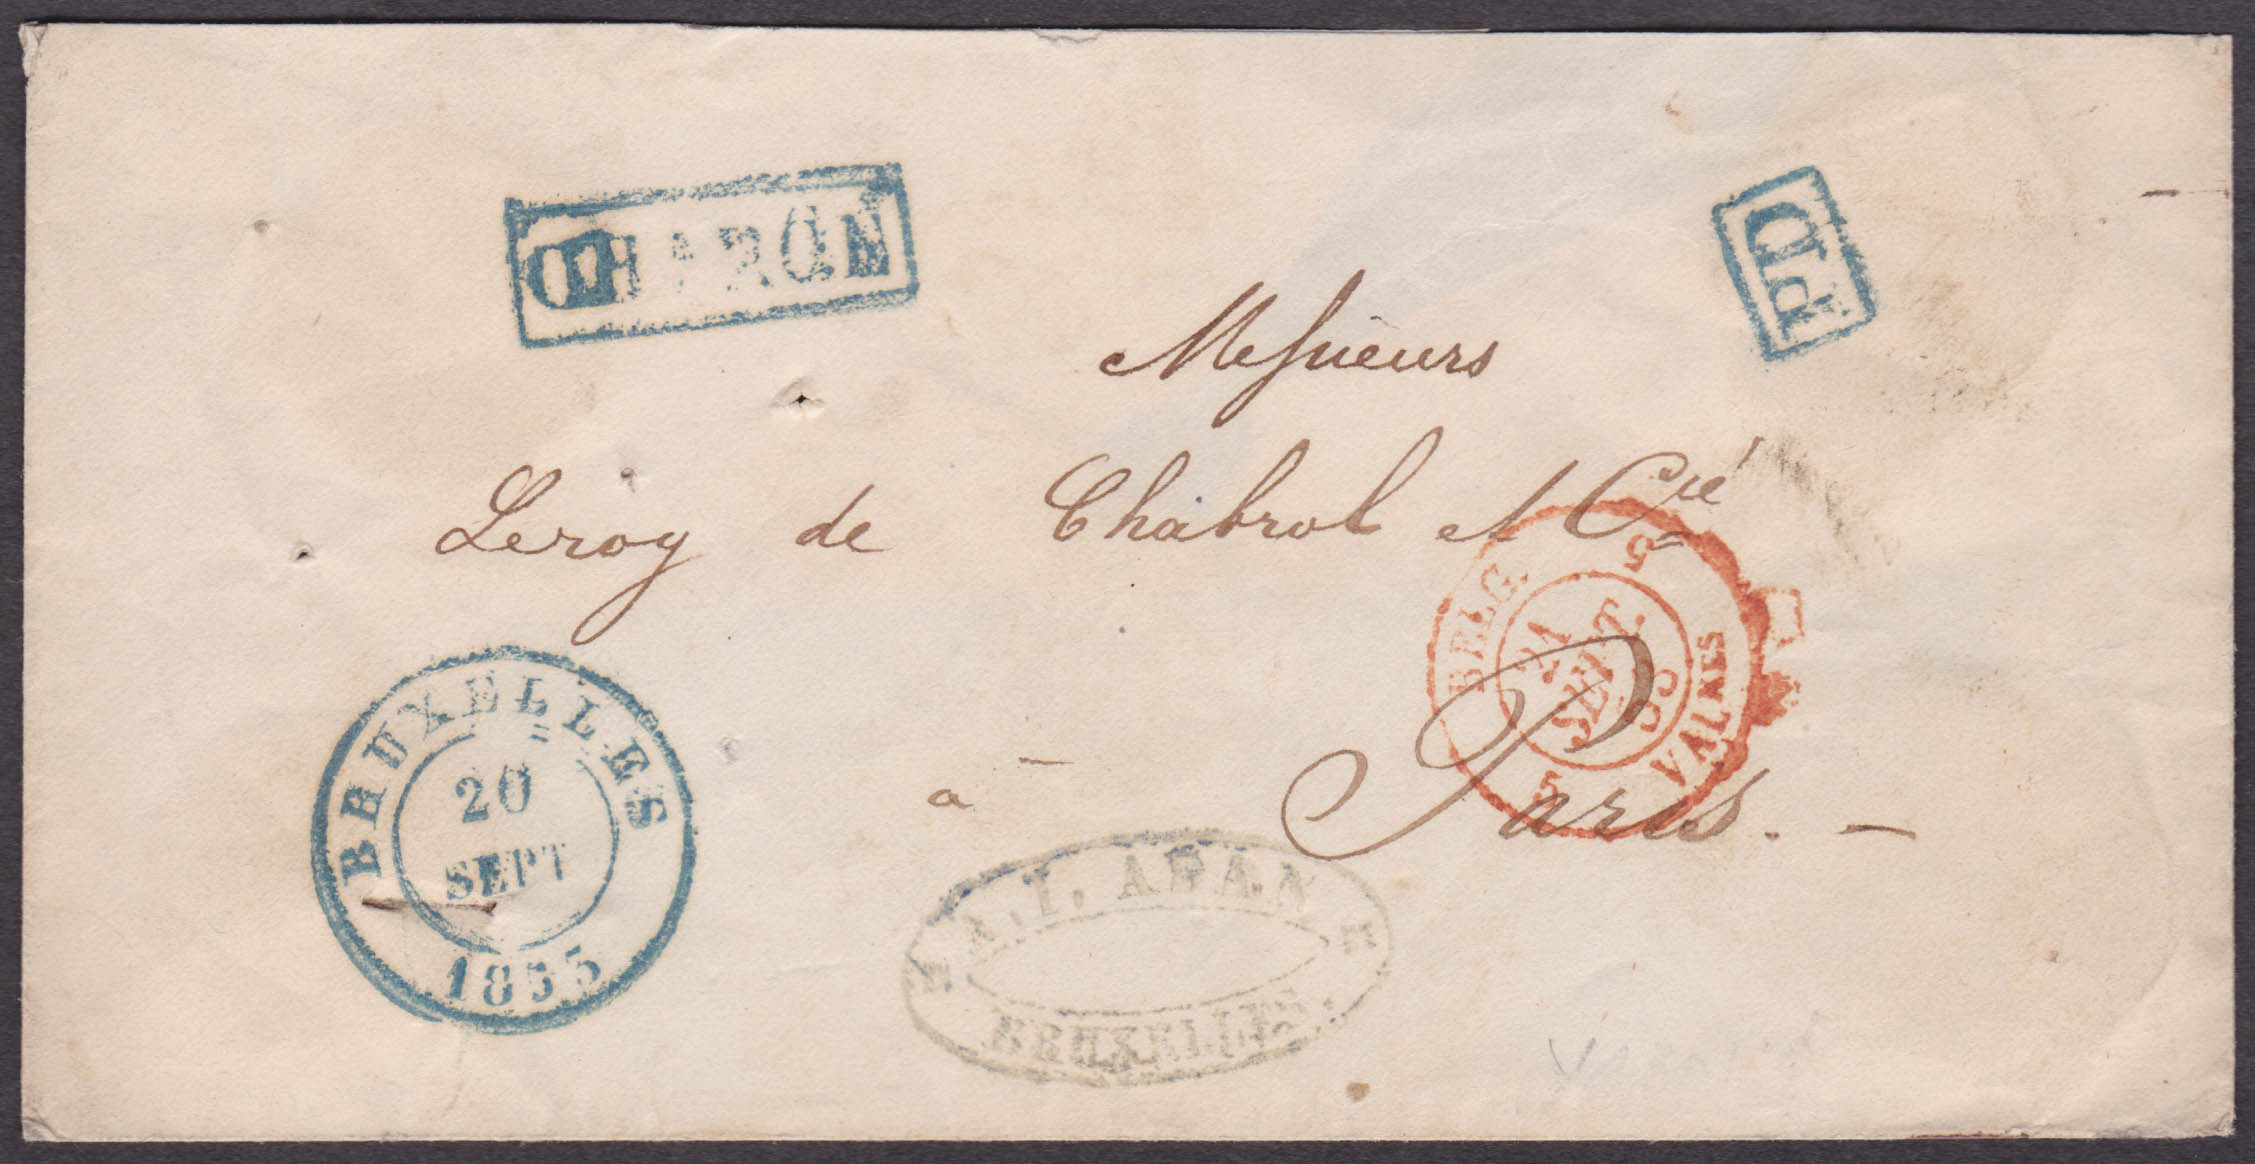 CHARON
PD
Messieurs
Leroy de Chabrol et Cie
BELG. 5 VALNES 5
21
SEPT.
55
BRUXELLES
20
SEPT
1855
a Paris.
A. I. ADAN
BRUXELLES.